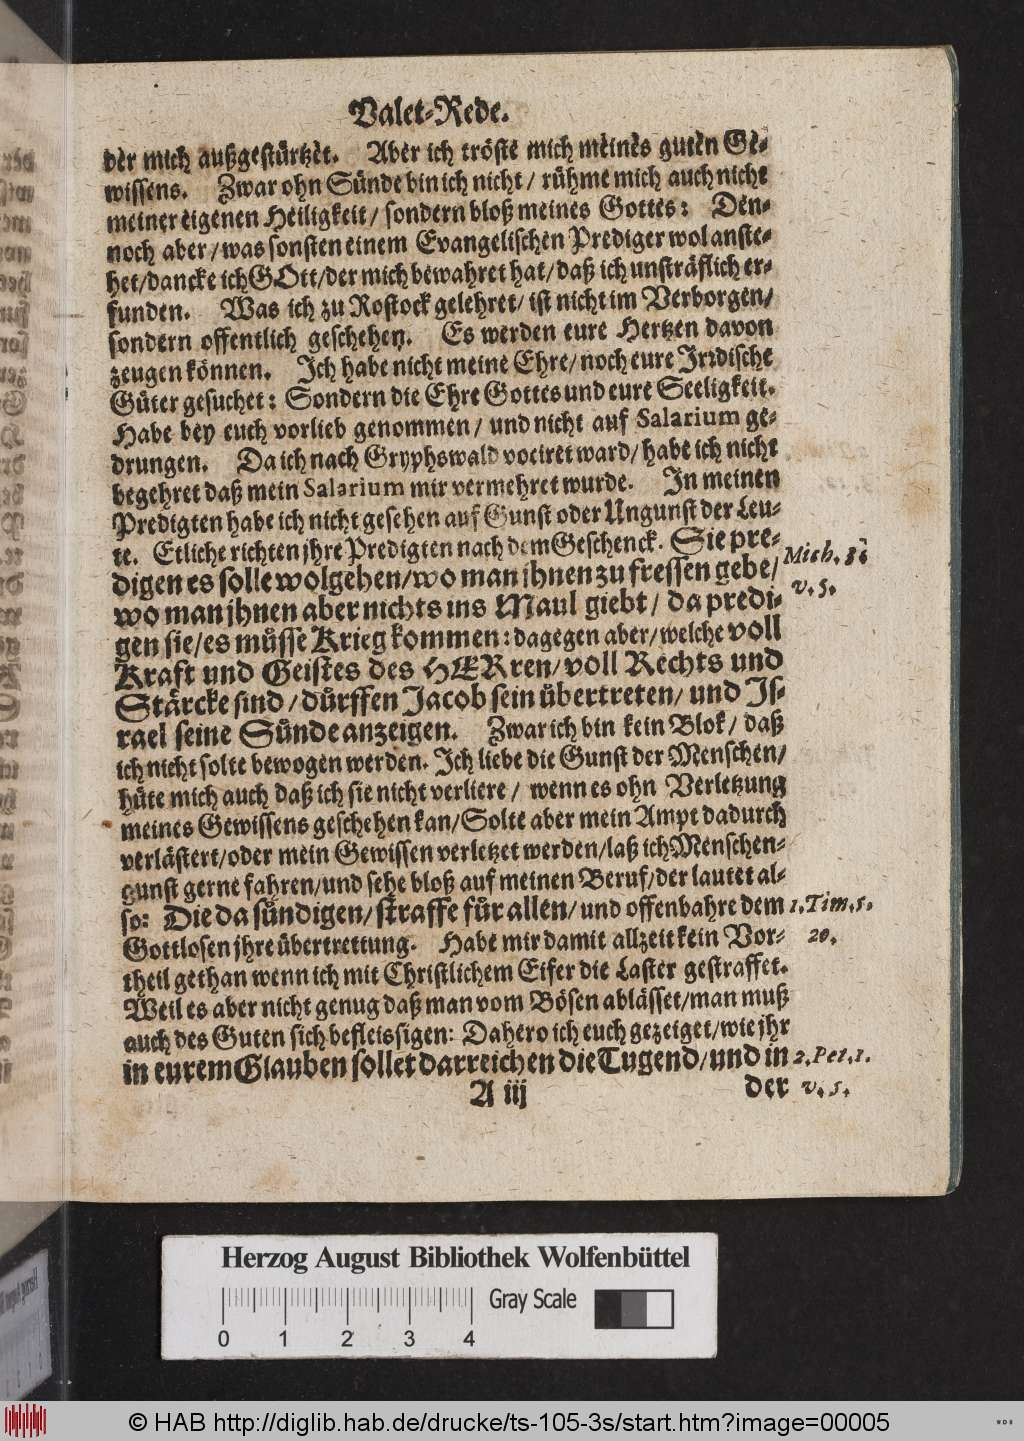 Valet-Rede.
der mich außgestürtzet. Aber ich tröste mich meines guten Ge-
wissens. Zwar ohn Sünde bin ich nicht / rühme mich auch nicht
meiner eigenen Heiligkeit / sondern bloß meines Gottes: Den-
noch aber / was sonsten einem Evangelischen Prediger wol anste-
het / dancke ich GOtt / der mich bewahret hat / daß ich unsträflich er-
funden. Was ich zu Rostock gelehret / ist nicht im Verborgen /
sondern offentlich geschehen. Es werden eure Hertzen davon
zeugen können. Ich habe nicht meine Ehre / noch eure Irrdische
Güter gesuchet: Sondern die Ehre Gottes und eure Seeligkeit.
Habe bey euch vorlieb genommen / und nicht auf Salarium ge-
drungen. Da ich nach Gryphswald vociret ward / habe ich nicht
begehret daß mein Salarium mir vermehret wurde. In meinen
Predigten habe ich nicht gesehen auf Gunst oder Ungunst der Leu-
te. Etliche richten jhre Predigten nach dem Geschenck. Sie pre- Mich. 3.
digen es solle wolgehen / wo man ihnen zu fressen gebe / v. 5.
wo man jhnen aber nichts ins Maul giebt / da predi-
gen sie / es müsse Krieg kommen: dagegen aber / welche voll
Kraft und Geistes des HERren / voll Rechts und
Stärcke sind / dürffen Jacob sein übertreten / und Is-
rael seine Sünde anzeigen. Zwar ich bin kein Blok / daß
ich nicht solte bewogen werden. Ich liebe die Gunst der Menschen /
hüte mich auch daß ich sie nicht verliere / wenn es ohn Verletzung
meines Gewissens geschehen kan / Solte aber mein Ampt dadurch
verlästert / oder mein Gewissen verletzet werden / laß ich Menschen-
gunst gerne fahren / und sehe bloß auf meinen Beruf / der lautet al-
so: Die da sündigen / straffe für allen / und offenbahre dem 1. Tim. 5.
Gottlosen jhre übertrettung. Habe mir damit allzeit kein Vor- 20.
theil gethan wenn ich mit Christlichem Eifer die Laster gestraffet.
Weil es aber nicht genug daß man vom Bösen ablässet / man muß
auch des Guten sich befleissigen: Dahero ich euch gezeiget / wie jhr
in eurem Glauben sollet darreichen die Tugend / und in 2. Pet. 1.
A iij der v. 5.
Herzog August Bibliothek Wolfenbüttel
Gray Scale
0 1 2 3 4
© HAB http://diglib.hab.de/drucke/ts-105-3s/start.htm?image=00005